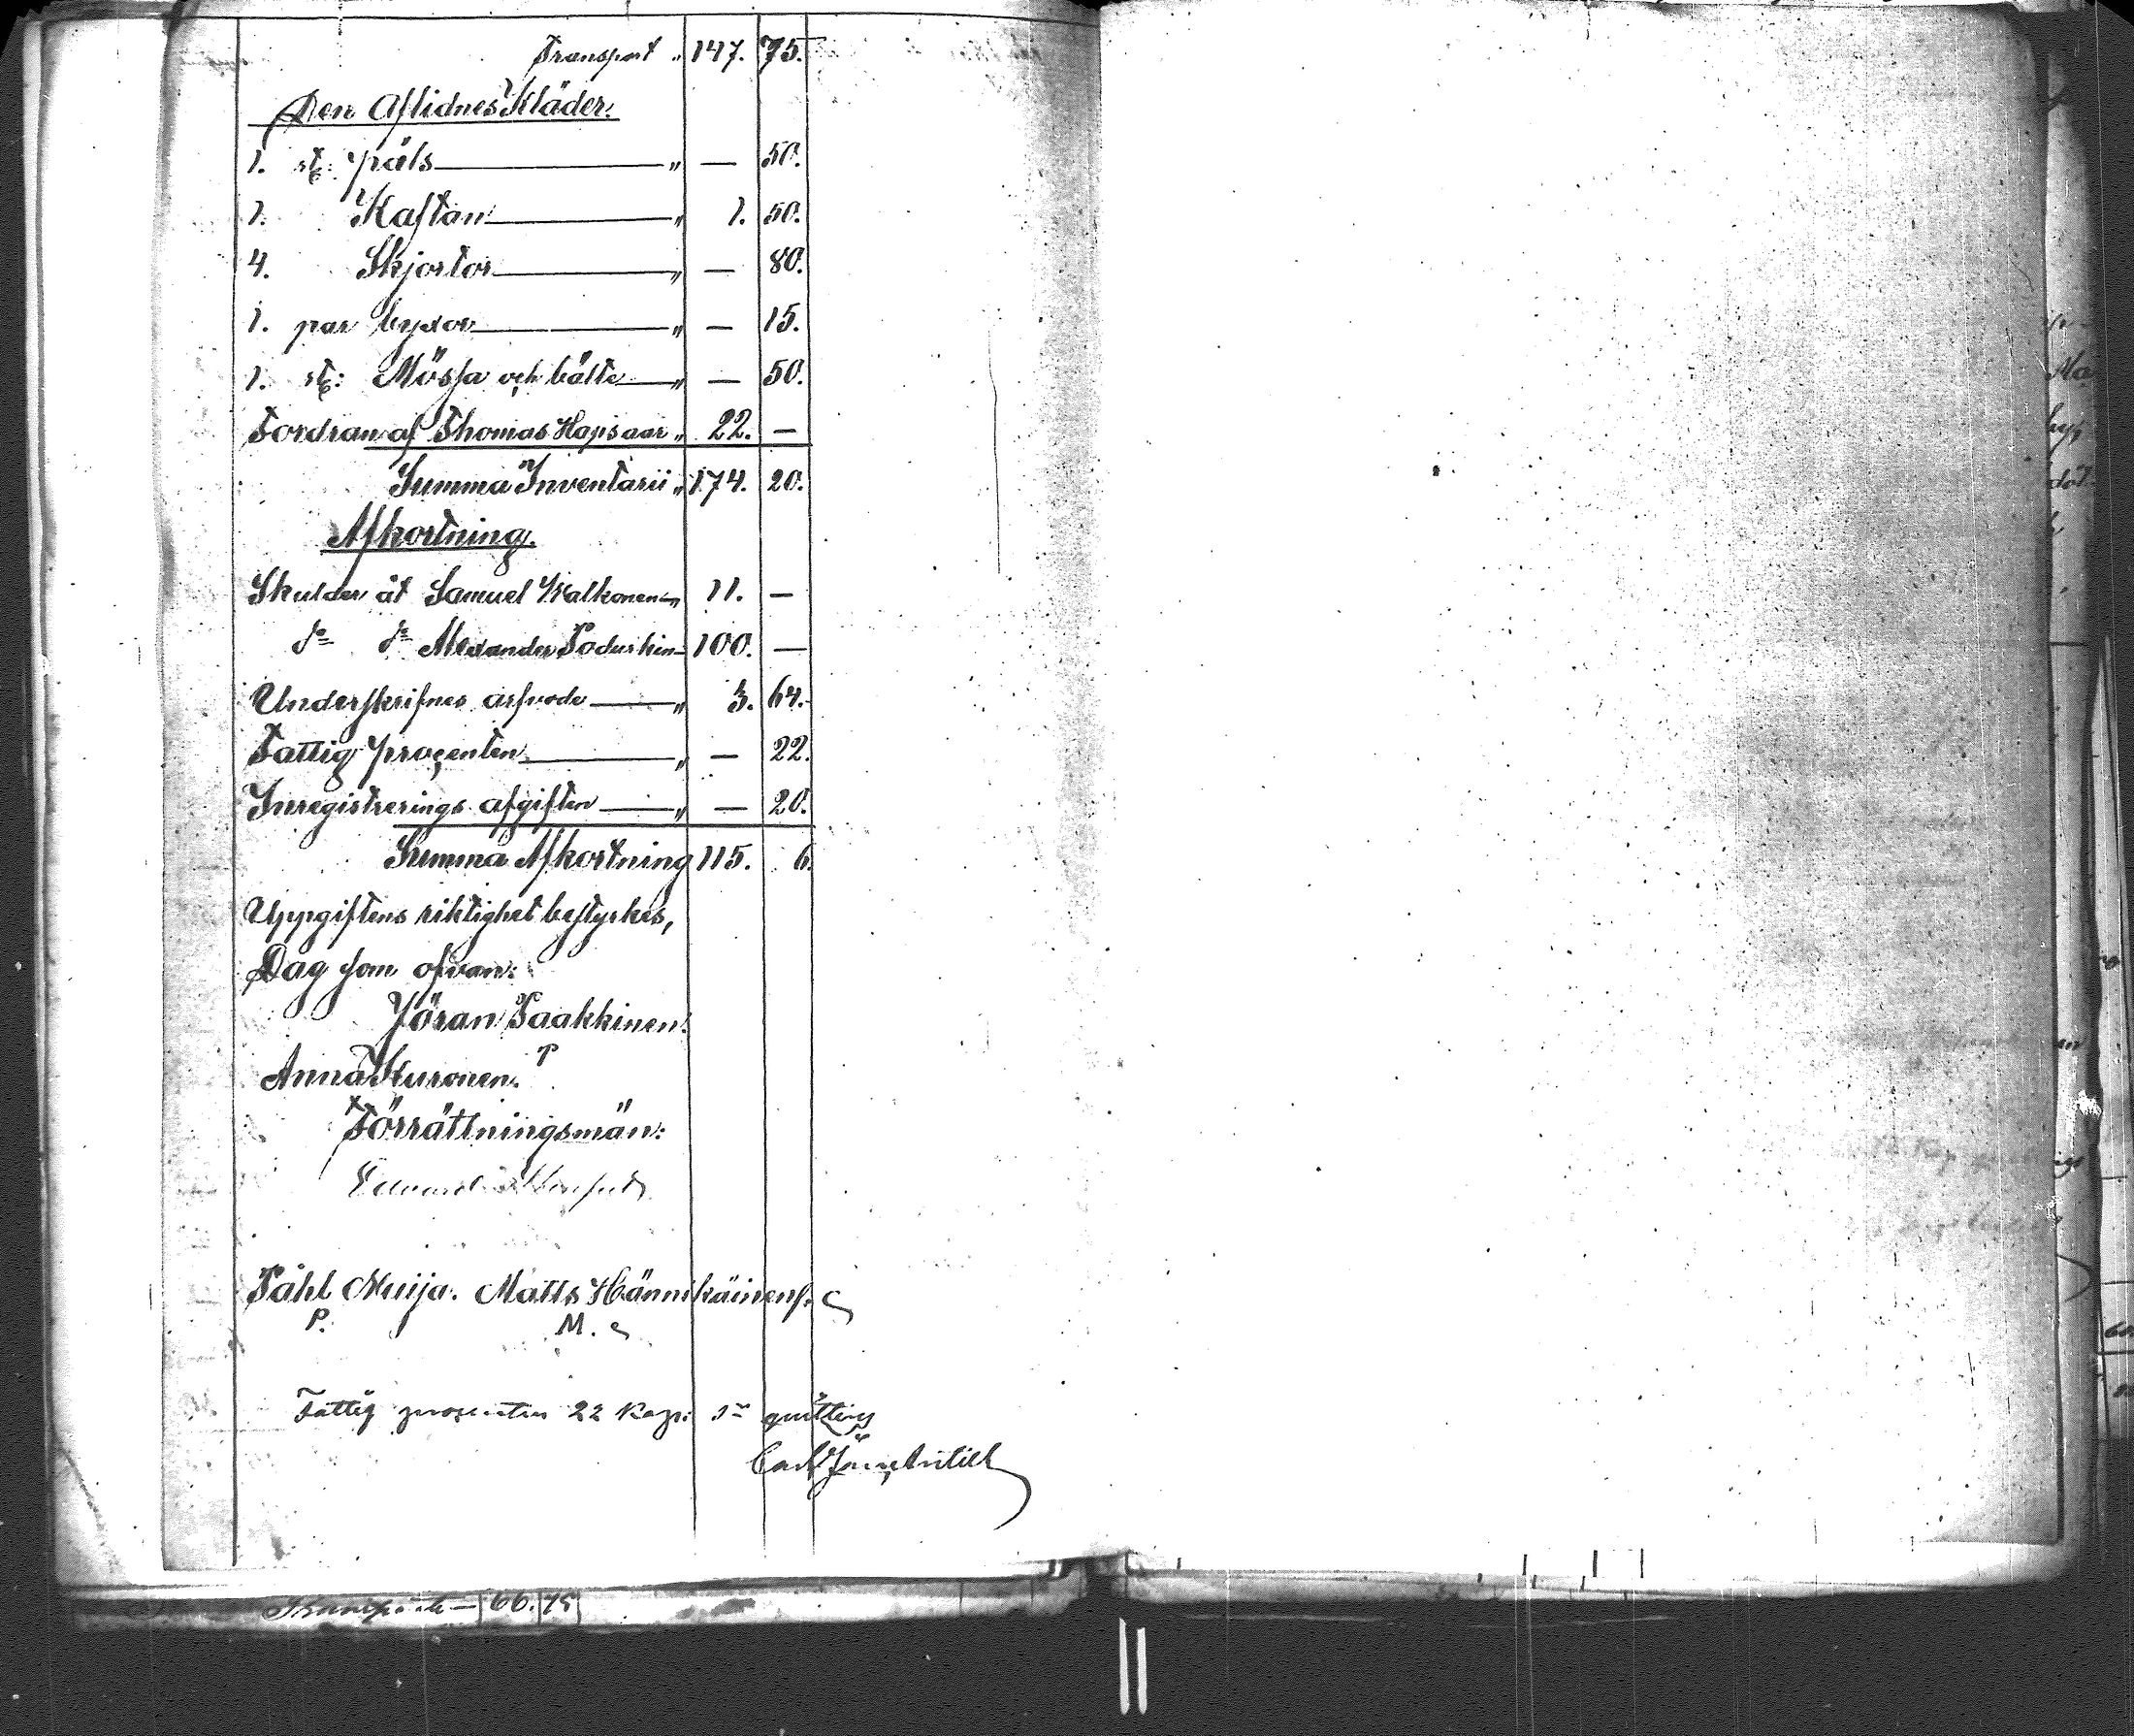 Transport „ 147. 75.
Den Aflidnes Kläder.
1. st: päls „ — 50.
1. Kaftan „ 1. 50.
4. Skjortor „ — 80.
1. par byxor „ — 15.
1. st: Mössa och bälte „ — 50.
Fordran af Thomas Hapsaar „ 22. —
Summa Inventarii „ 174. 20.
Afkortning.
Skulder åt Samuel Kalkonen „ 11. —
d:o d:o Alexander Poduskin 100. —
Underskrifnes arfvode „ 3. 64.
Fattig procenten „ — 22.
Inregistrerings afgiften „ — 20.
Summa Afkortning 115. 6.
Uppgiftens riktighet bestyrkes,
Dag som ofvan:
Jöran Paakkinen.
Anna Muronen.
Förrättningsmän:
Edvard
Påhl Muija. Matts Hännikäinen
P. M.
Fattig procenten 22 kop: qvitteras
Carl
66. 75